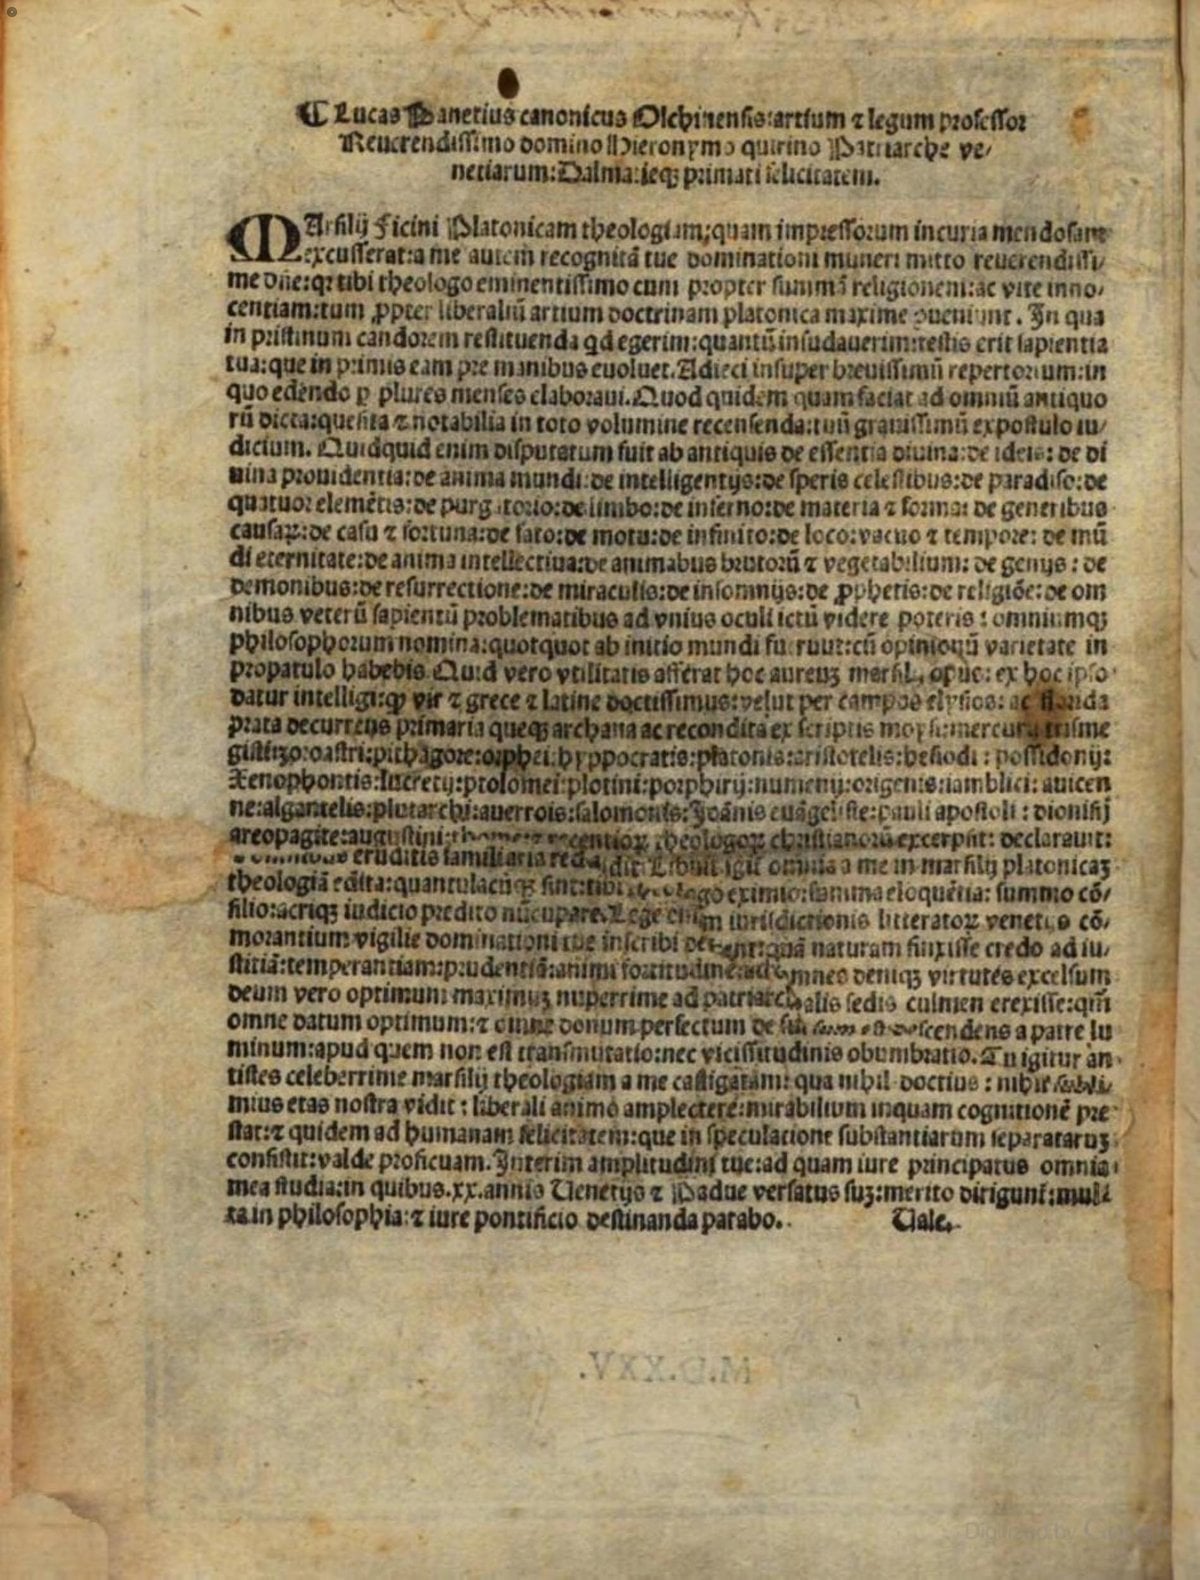 ¶ Lucas Panetius canonicus Olchinensis: artium ⁊ legum professor
Reuerendissimo domino Hieronymo quirino Patriarche ve⸗
netiarum: Dalmatieqꝫ primati felicitatem.
MArsilij Ficini Platonicam theologiam; quam impressorum incuria mendosam
excusserat: a me autem recognitā tue dominationi muneri mitto reuerendissi⸗
me dñe: qꝛ tibi theologo eminentissimo cum propter summā religionem: ac vite inno⸗
centiam: tum ꝓpter liberaliū artium doctrinam platonica maxime ꝯueniunt. In qua
in pristinum candorem restituenda qd egerim: quantū insudauerim: testis erit sapientia
tua: que in primis eam pre manibus euoluet. Adieci insuper breuissimū repertorium: in
quo edendo ꝑ plures menses elaboraui. Quod quidem quam faciat ad omniū antiquo
rū dicta: quesita ⁊ notabilia in toto volumine recensenda: tuū grauissimū expostulo iu⸗
dicium. Quidquid enim disputatum fuit ab antiquis de essentia diuina: de ideis: de di
uina prouidentia: de anima mundi: de intelligentijs: de speris celestibus: de paradiso: de
quatuor elemētis: de purgatorio: de limbo: de inferno: de materia ⁊ forma: de generibus
causaꝝ: de casu ⁊ fortuna: de fato: de motu: de infinito: de loco: vacuo ⁊ tempore: de mū
di eternitate: de anima intellectiua: de animabus brutorū ⁊ vegetabilium: de genijs: de
demonibus: de resurrectione: de miraculis: de insomnijs: de ꝓphetis: de religiōe: de om
nibus veterū sapientū problematibus ad vnius oculi ictū videre poteris: omniumqꝫ
philosophorum nomina: quotquot ab initio mundi fuerunt: cū opinionū varietate in
propatulo habebis. Quid vero vtilitatis afferat hoc aureuꝫ marsilij opus: ex hoc ipso
datur intelligi: ꝙ vir ⁊ grece ⁊ latine doctissimus: velut per campos elysios: ac florida
prata decurrens primaria queqꝫ archana ac recondita ex scriptis moysi: mercurij trisme
gisti: zoroastri: pithagore: orphei: hyppocratis: platonis: aristotelis: hesiodi: possidonij:
Xenophontis: lucretij: ptolomei: plotini: porphirij: numenij: origenis: iamblici: auicen
ne: algantelis: plutarchi: auerrois: salomonis: Joānis euāgeliste: pauli apostoli: dionisij
areopagite: augustini: thome: ⁊ recentioꝝ theologoꝝ christianorū excerpsit: declarauit:
eruditis familiaria reddidit. Tibi igitur omnia a me in marsilij platonicaꝫ
theologiā edita: quantulacūqꝫ sint: tibi theologo eximio: summa eloquētia: summo cō⸗
silio: acriqꝫ iudicio predito nūcupare. Lege enim iurisdictionis litteratoꝝ venetijs cō⸗
morantium vigilie dominationi tue inscribi debent: quā naturam finxisse credo ad iu⸗
stitiā: temperantiam: prudentiā: animi fortitudinē: ad omnes deniqꝫ virtutes excelsum
deum vero optimum: maximuꝫ nuperrime ad patriarchalis sedis culmen erexisse: qm̄
omne datum optimum: ⁊ omne donum perfectum de sursum est descendens a patre lu
minum: apud quem non est transmutatio: nec vicissitudinis obumbratio. Tu igitur an⸗
tistes celeberrime marsilij theologiam a me castigatam: qua nihil doctius: nihil subli⸗
mius etas nostra vidit: liberali animo amplectere: mirabilium inquam cognitionē pre
stat: ⁊ quidem ad humanam felicitatem: que in speculatione substantiarum separataruꝫ
consistit: valde proficuam. Interim amplitudini tue: ad quam iure principatus omnia
mea studia: in quibus .xx. annis Uenetijs ⁊ Padue versatus suꝫ: merito diriguntur: mul⸗
ta in philosophia: ⁊ iure pontificio destinanda parabo. Uale.
M.D.XXV.